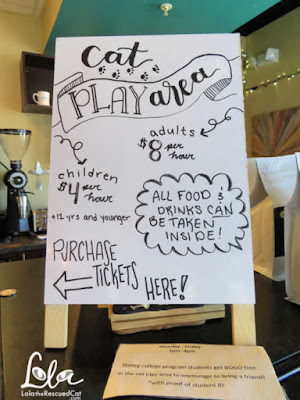 Cat
PLAY area
adults
$8 per
hour
children
$4 per
hour
+12 yrs and younger
ALL FOOD &
DRINKS CAN
BE TAKEN
INSIDE!
PURCHASE
TICKETS
HERE!
Monday - Friday
1pm-5pm
college program students get BOGO free
in the cat play area to encourage to bring a friend!
*with proof of student ID
Lola
LolatheRescuedCat
.com